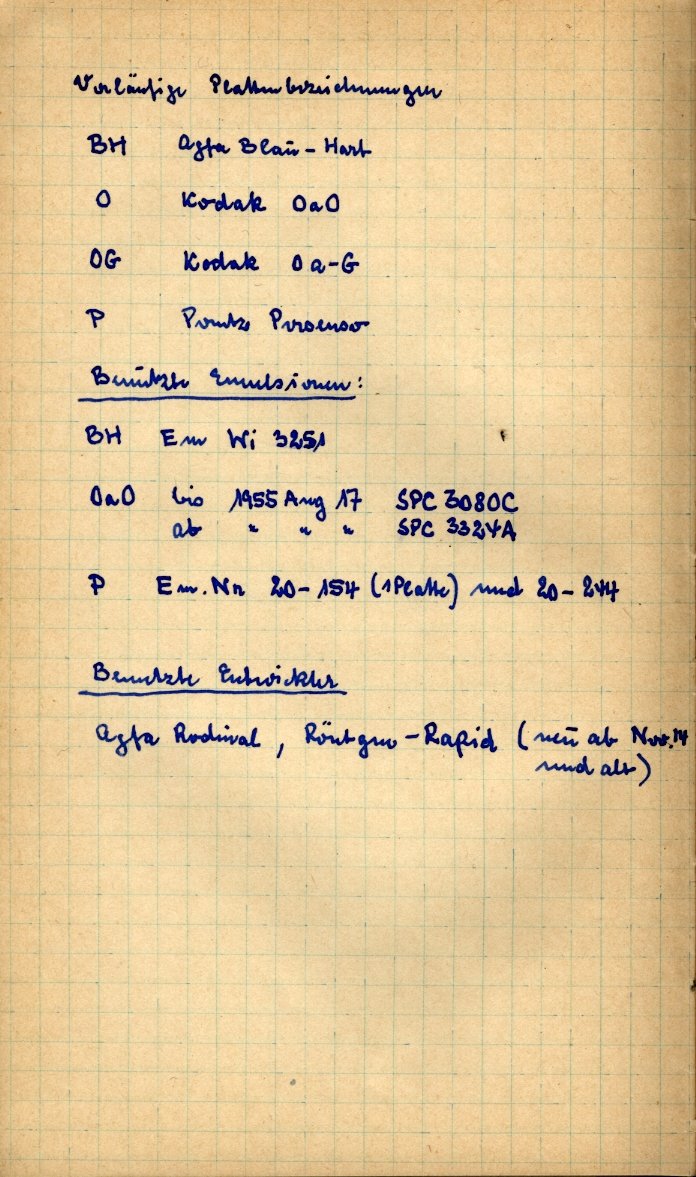 Vorläufige Plattenbezeichnungen
BH Agfa Blau-Hart
O Kodak OaO
OG Kodak Oa-G
P Perutz Persenso
Benützte Emulsionen:
BH Em Wi 3251
OaO bis 1955 Aug 17 SPC 3080C
ab " " " SPC 3324A
P Em. Nr 20-154 (1 Platte) und 20-244
Benutzte Entwickler
Agfa Rodinal, Röntgen-Rapid (neu ab Nov. 14
und alt)